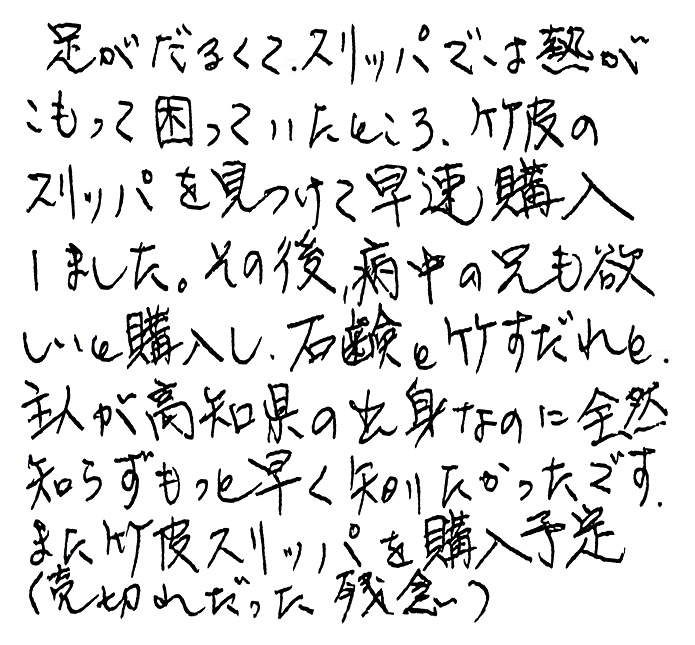 足がだるくて、スリッパでは熱が
こもって困っていたところ、竹皮の
スリッパを見つけて早速購入
しました。その後、病中の兄も欲
しいと購入し、石鹸と竹すだれと、
主人が高知県の出身なのに全然
知らずもっと早く知りたかったです、
また竹皮スリッパを購入予定
（売切れだった残念）